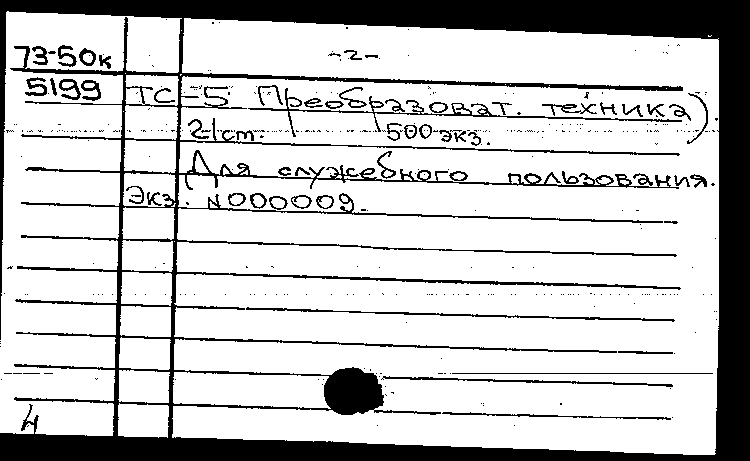 73-50к -2-
5199 ТС-5 Преобразоват. техника).
500 экз.
Для служебного пользования.
Экз. N000009.